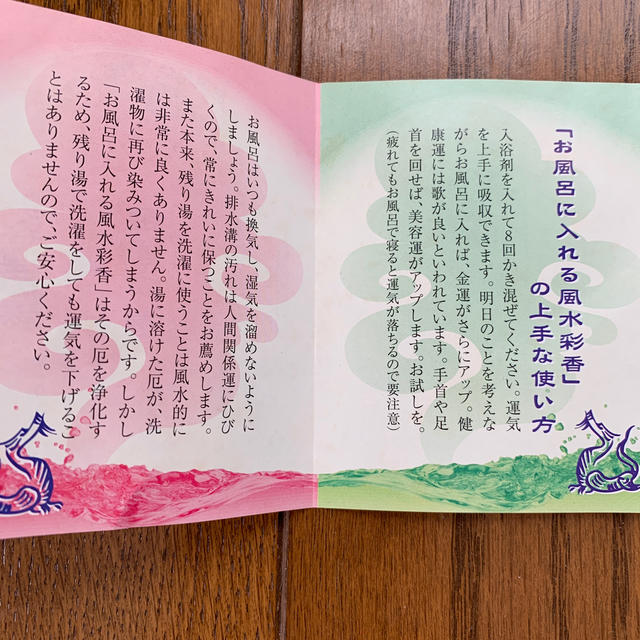 「お風呂に入れる風水彩香」
の上手な使い方
入浴剤を入れて8回かき混ぜてください。運気
を上手に吸収できます。明日のことを考えな
がらお風呂に入れば、金運がさらにアップ。健
康運には歌が良いといわれています。手首や足
首を回せば、美容運がアップします。お試しを。
(疲れてもお風呂で寝ると運気が落ちるので要注意)
お風呂はいつも換気し、湿気を溜めないように
しましょう。排水溝の汚れは人間関係運にひび
くので、常にきれいに保つことをお薦めします。
また本来、残り湯を洗濯に使うことは風水的に
は非常に良くありません。湯に溶けた厄が、洗
濯物に再び染みついてしまうからです。しかし
「お風呂に入れる風水彩香」はその厄を浄化す
るため、残り湯で洗濯をしても運気を下げるこ
とはありませんので、ご安心ください。